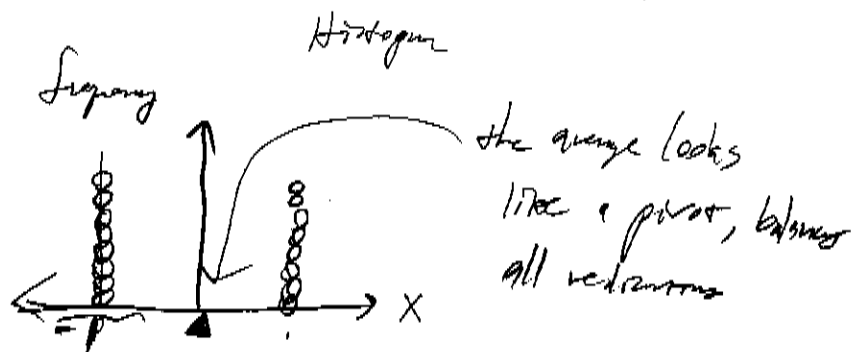 Histogram
frequency
the average looks
like a pivot, balancing
all
X